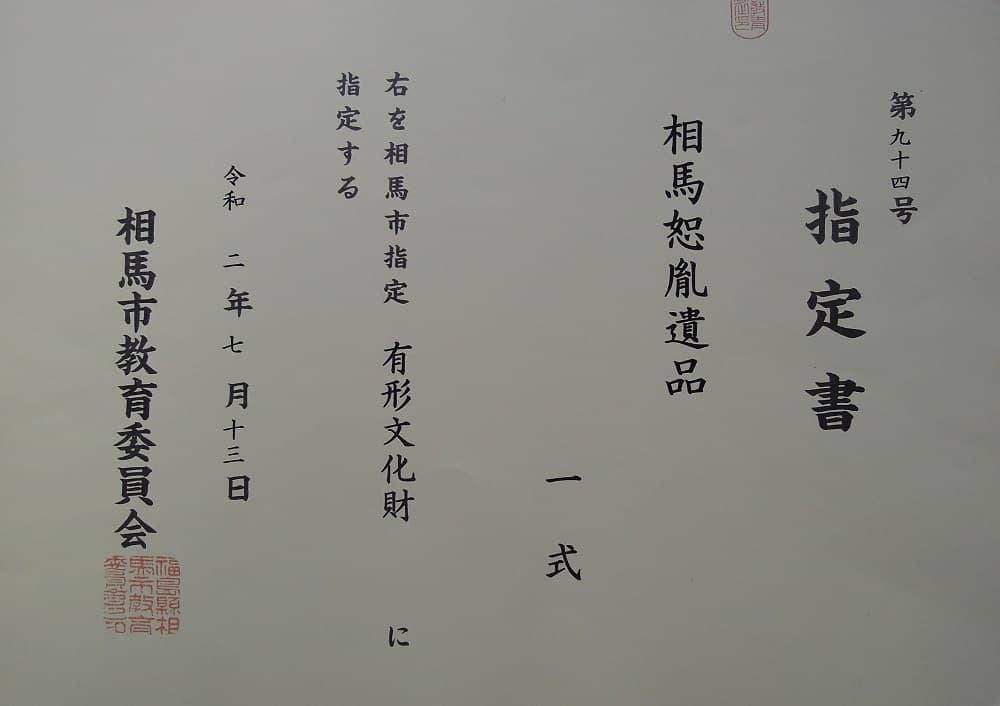 第九十四号
指定書
相馬恕胤遺品
一式
右を相馬市指定 有形文化財 に
指定する
令和 二年七月十三日
相馬市教育委員会
福島縣相
馬市教育
委員會之印